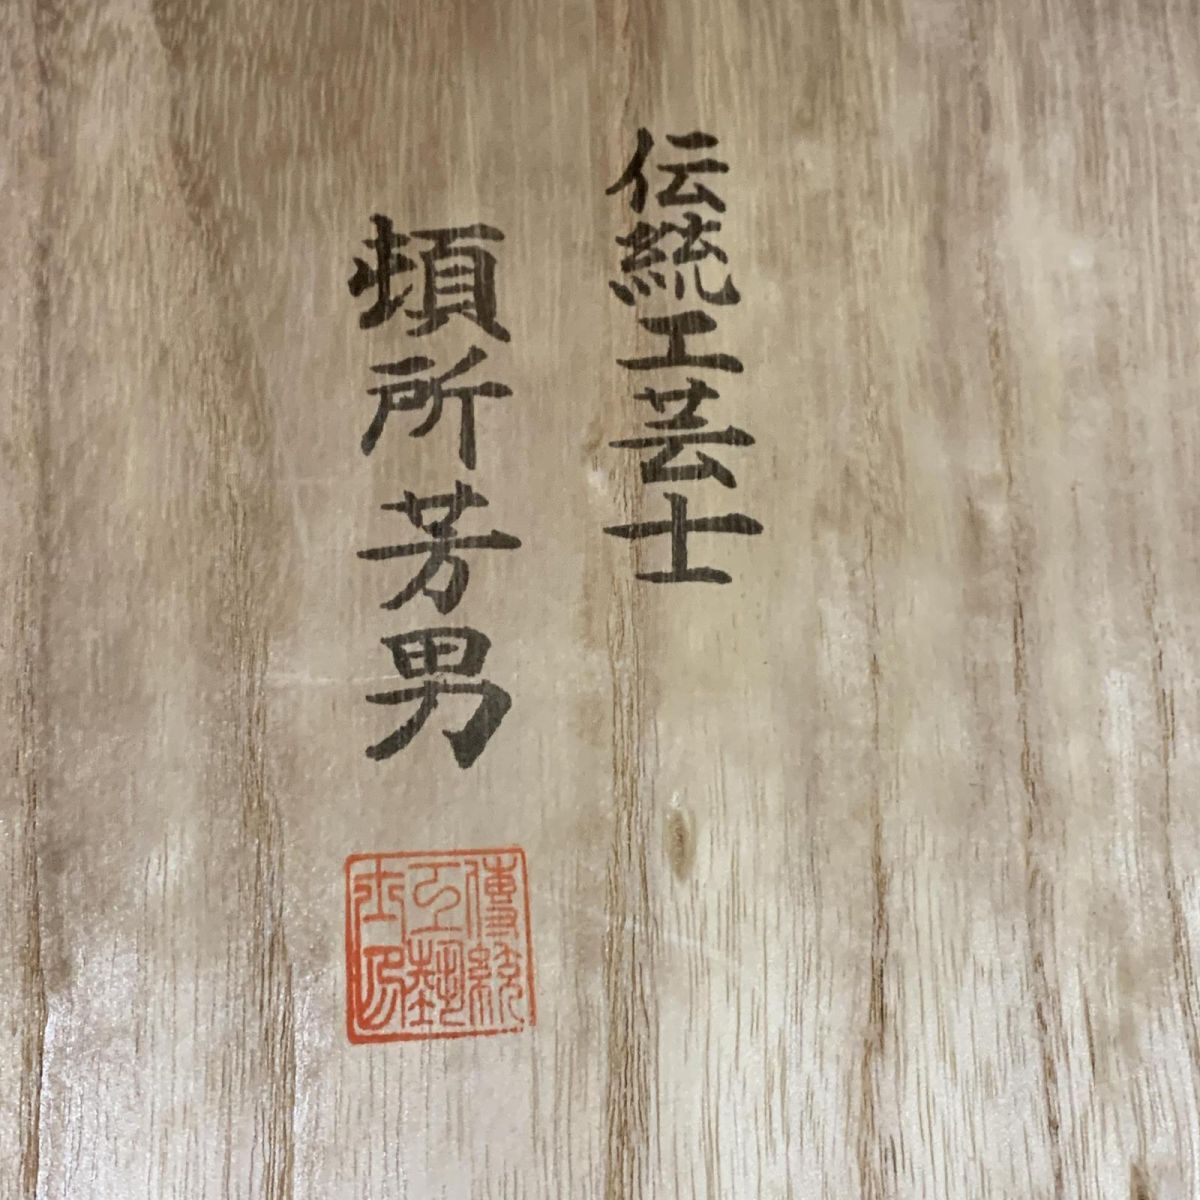 伝統工芸士
頓所芳男
傳統
工藝
士印